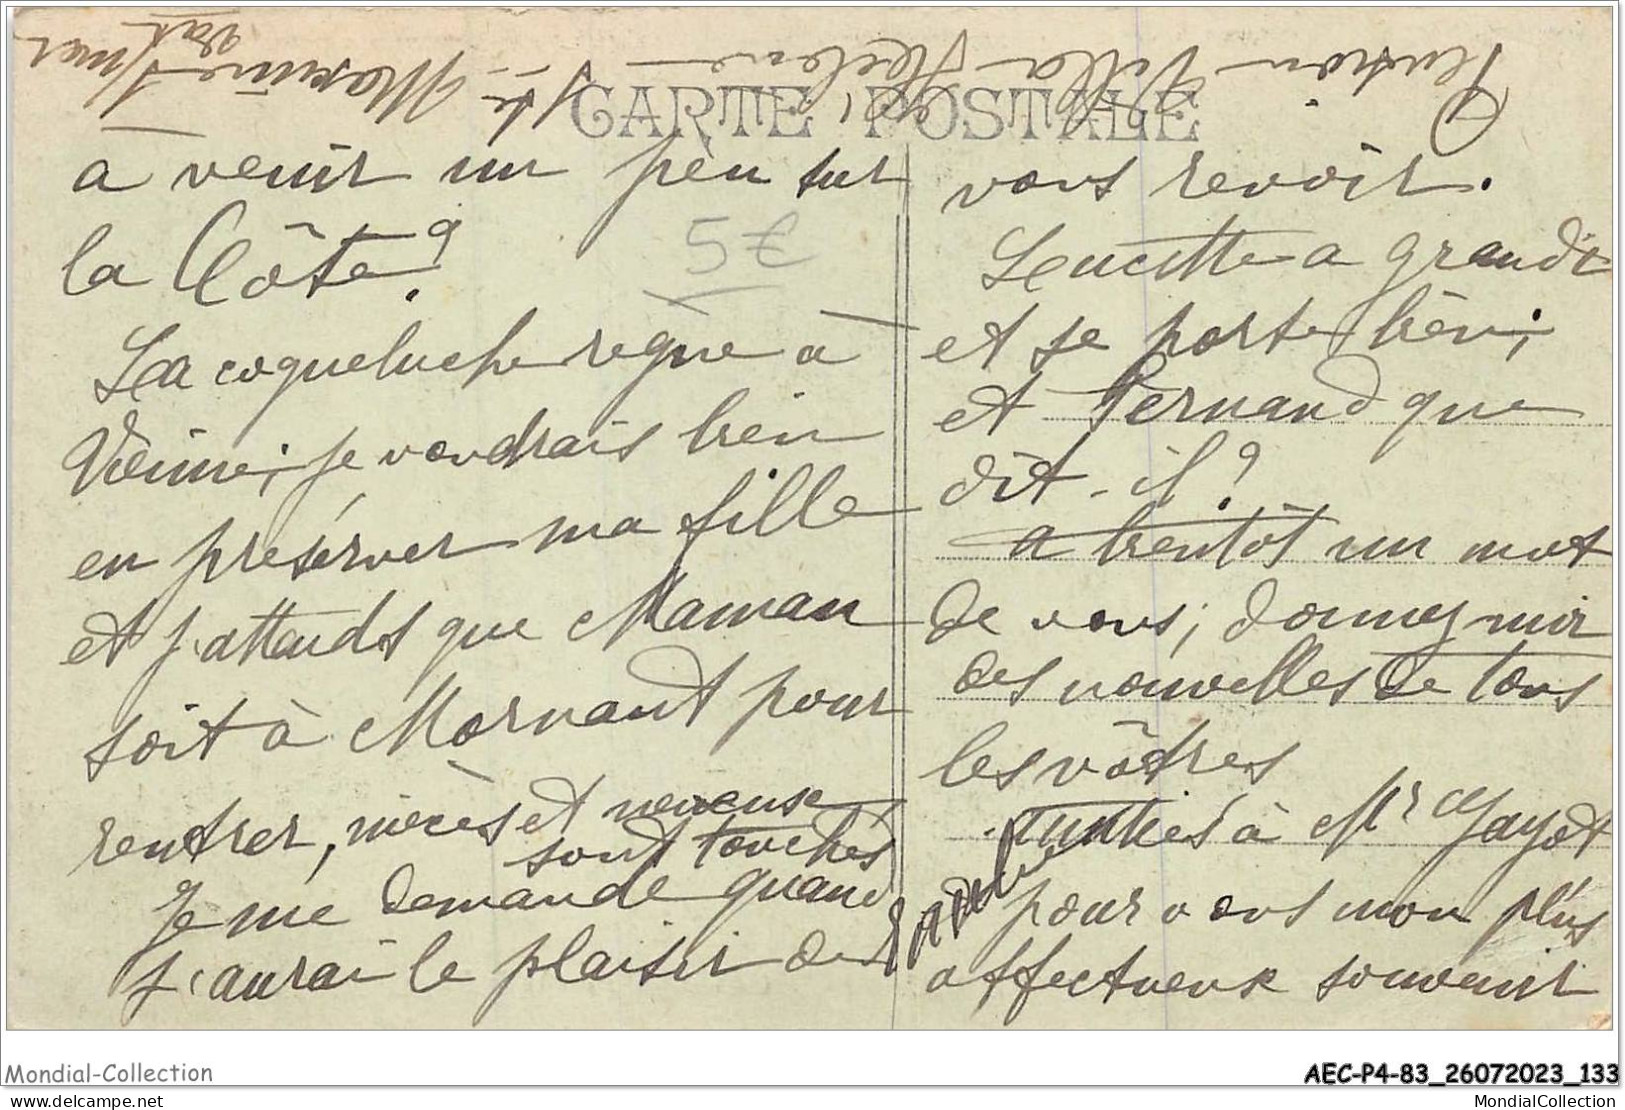 Pension Villa Hélène
Ste Maxime s/mer
Var
CARTE POSTALE
à venir un peu sur
la Côte ?
5€
La coqueluche règne à
Vienne ; je voudrais bien
en préserver ma fille
et j'attends que Maman
soit à Mornant pour
rentrer, nièces et neveuse
sont touchés
Je me demande quand
j'aurai le plaisir de
vous revoir.
Lucette a grandi
et se porte bien ;
et Fernand que
dit-il ?
a bientôt un mot
de vous ; donnez moi
des nouvelles de tous
les vôtres
Amitiés à Mr Gayot
pour vous mon plus
affectueux souvenir
Mondial-Collection
AEC-P4-83_26072023_133
delcampe.net
MondialCollection